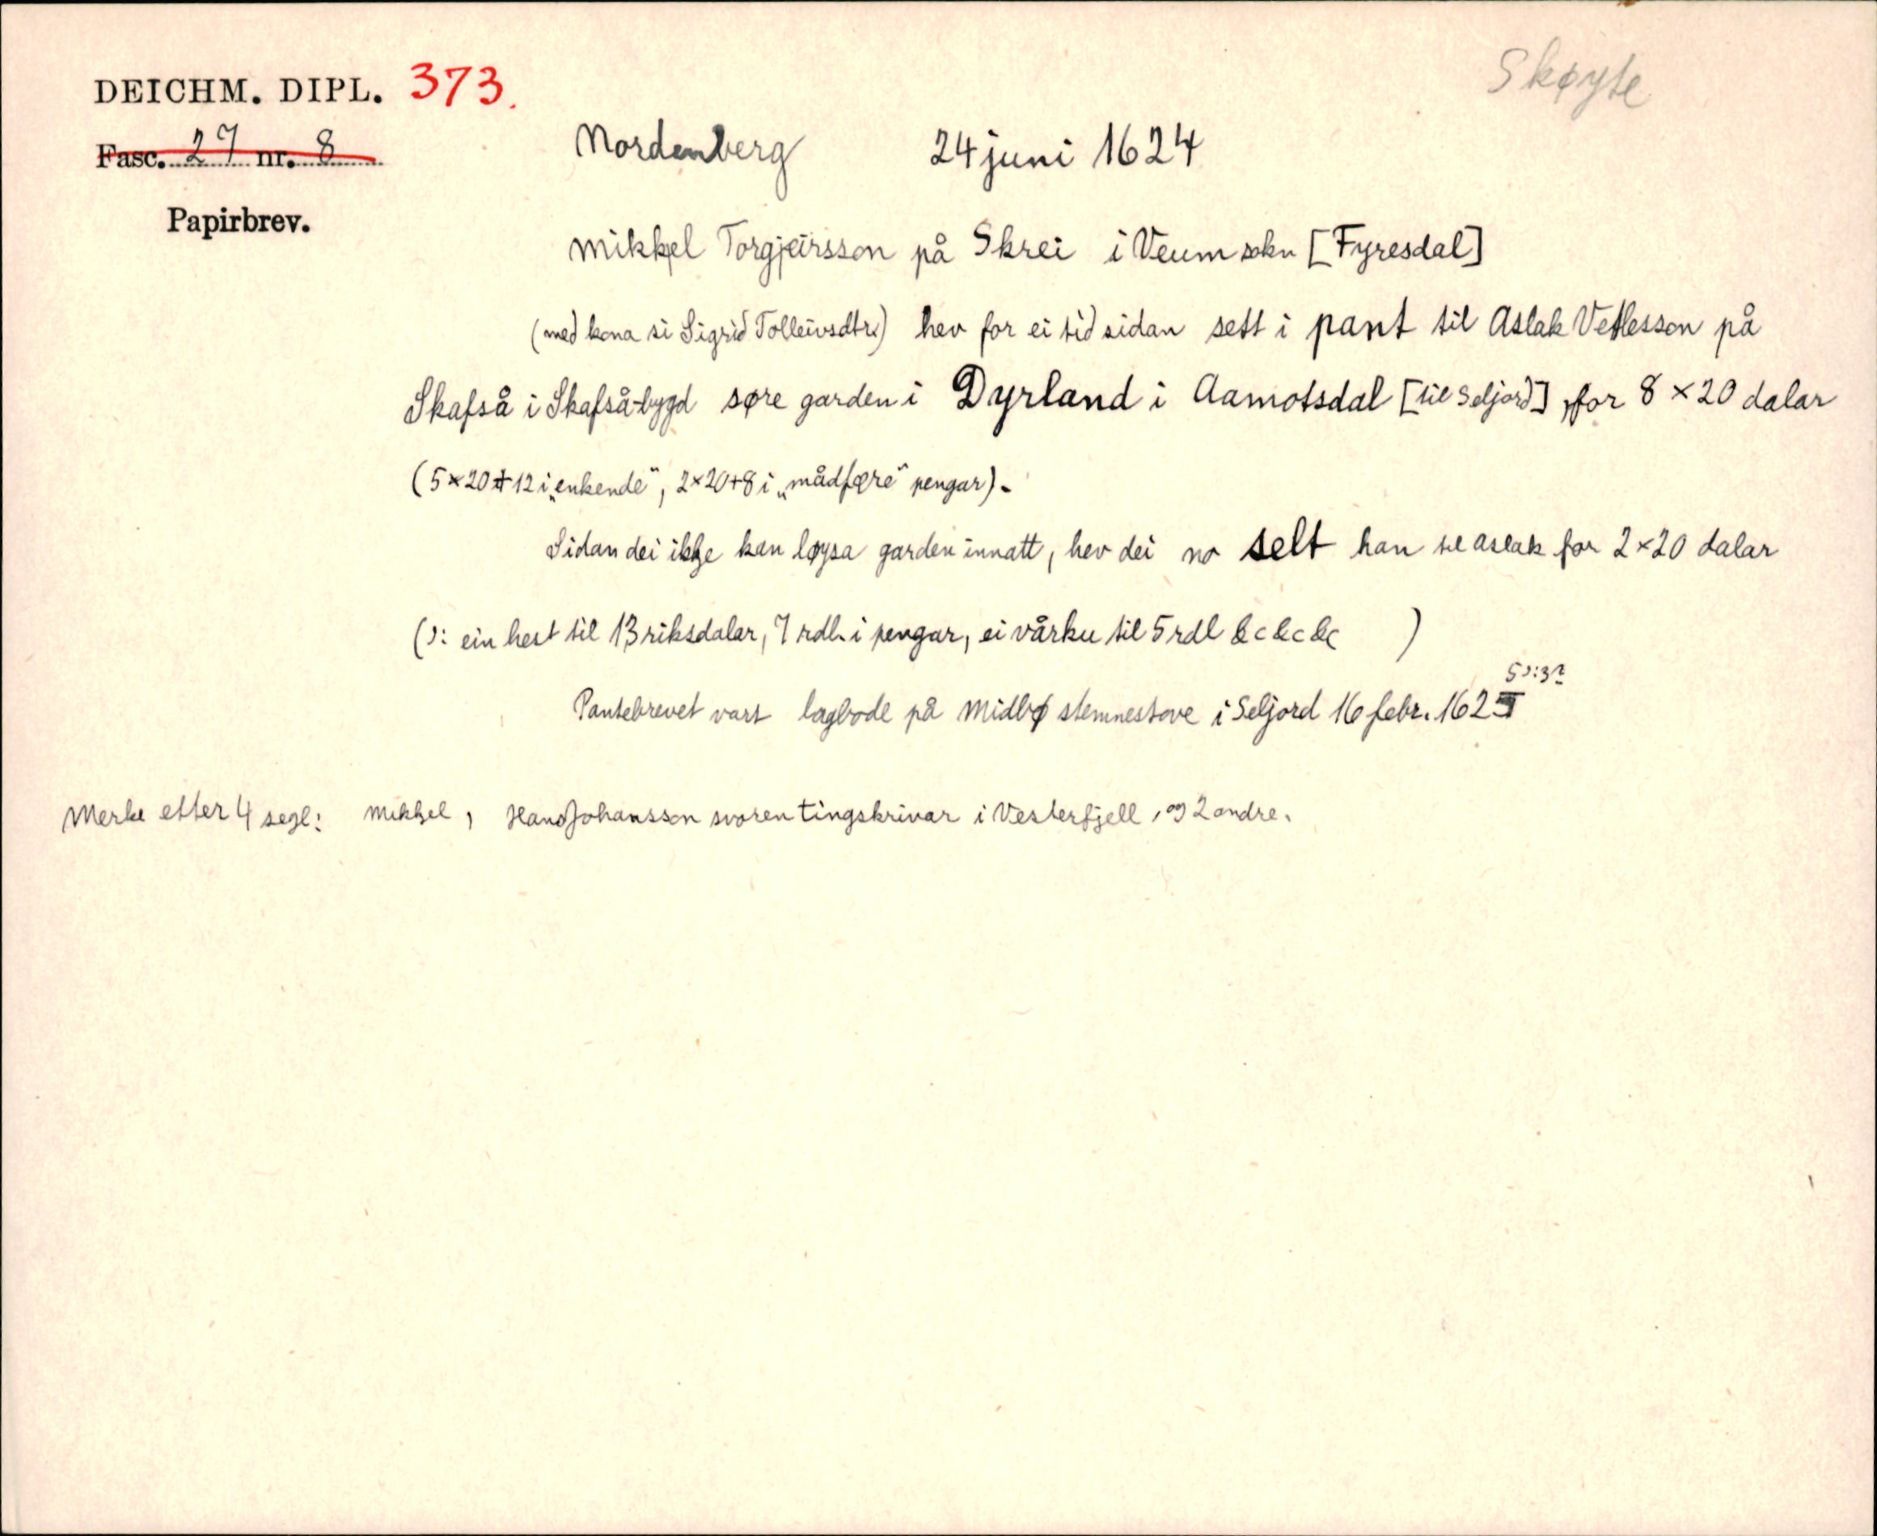 Skøyte
DEICHM. DIPL. 373.
Fasc. 27 nr. 8
Papirbrev.
Nordenberg 24 juni 1624
Mikkjel Torgjeirsson på Skrei i Veum sokn [Fyresdal]
(med kona si Sigrid Tolleivsdtr.) hev for ei tid sidan sett i pant til Aslak Vetlesson på
Skafså i Skafså-bygd søre garden i Dyrland i Aamotsdal [til Seljord], for 8 × 20 dalar
(5 × 20 + 12 i „enkende“, 2 × 20 + 8 i „mådfære“ pengar).
Sidan dei ikkje kan løysa garden innatt, hev dei no selt han til Aslak for 2 × 20 dalar
(ɔ: ein hest til 13 riksdalar, 7 rdl. i pengar, ei vårku til 5 rdl &c &c &c )
5 ɔ: 3?
Pantebrevet vart lagbode på Midbø stemnestove i Seljord 16 febr. 162
Merke etter 4 segl: Mikkjel, Hans Johansson svoren tingskrivar i Vesterfjell, og 2 andre.